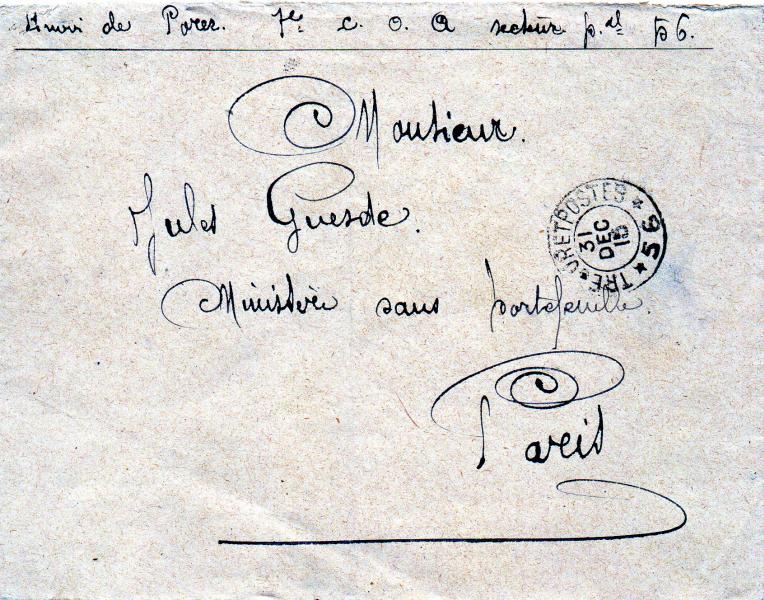 Envoi de Porez. 7e C. O. A secteur p.al 56.
Monsieur.
Jules Guesde.
Ministère sans portefeuille.
Paris
TRESOR ET POSTES * 56 *
31
DEC
15